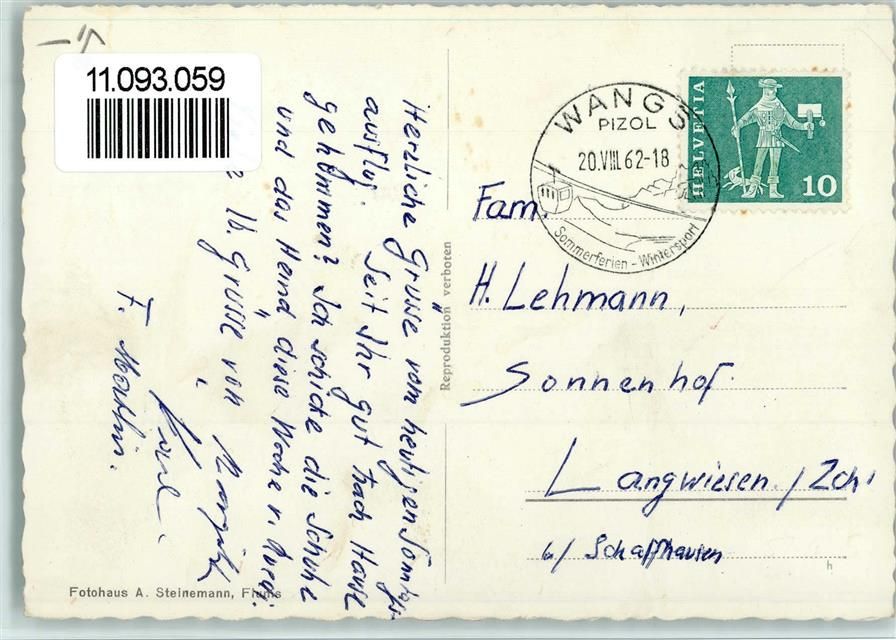 11.093.059
Herzliche Grüsse vom heutigen Sonntags-
ausflug. Seit Ihr gut nach Hause
gekommen? Ich schicke die Schuhe
und das Hemd diese Woche n.
lb. Grüsse von
F.
WANGS
PIZOL
20.VIII.62-18
Sommerferien - Wintersport
HELVETIA
10
Fam.
H. Lehmann,
Sonnenhof.
Langwiesen / Zch.
b/ Schaffhausen
Reproduktion verboten
Fotohaus A. Steinemann, Flums
h